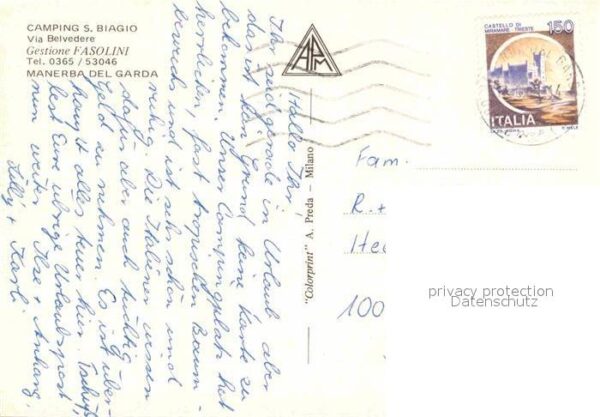 CAMPING S. BIAGIO
Via Belvedere
Gestione FASOLINI
Tel. 0365 / 53046
MANERBA DEL GARDA
APM
"Colorprint" A. Preda - Milano
CASTELLO DI
MIRAMARE TRIESTE
150
ITALIA
Hallo Ihr,
Ihr seid gerade in Urlaub aber
das ist kein Grund keine Karte zu
bekommen. Unser Campingplatz hat
herrlichen, fast tropischen Baum-
bewuchs und ist sehr schön und
ruhig. Die Italiener wissen
dafür aber auch tüchtig
Geld zu nehmen. Es ist über-
haupt alles teuer hier. Tschüß,
lest Eure übrige Urlaubspost
nun weiter Ilse + Anhang.
Lilly + Karl.
Fam.
R. +
100
privacy protection
Datenschutz